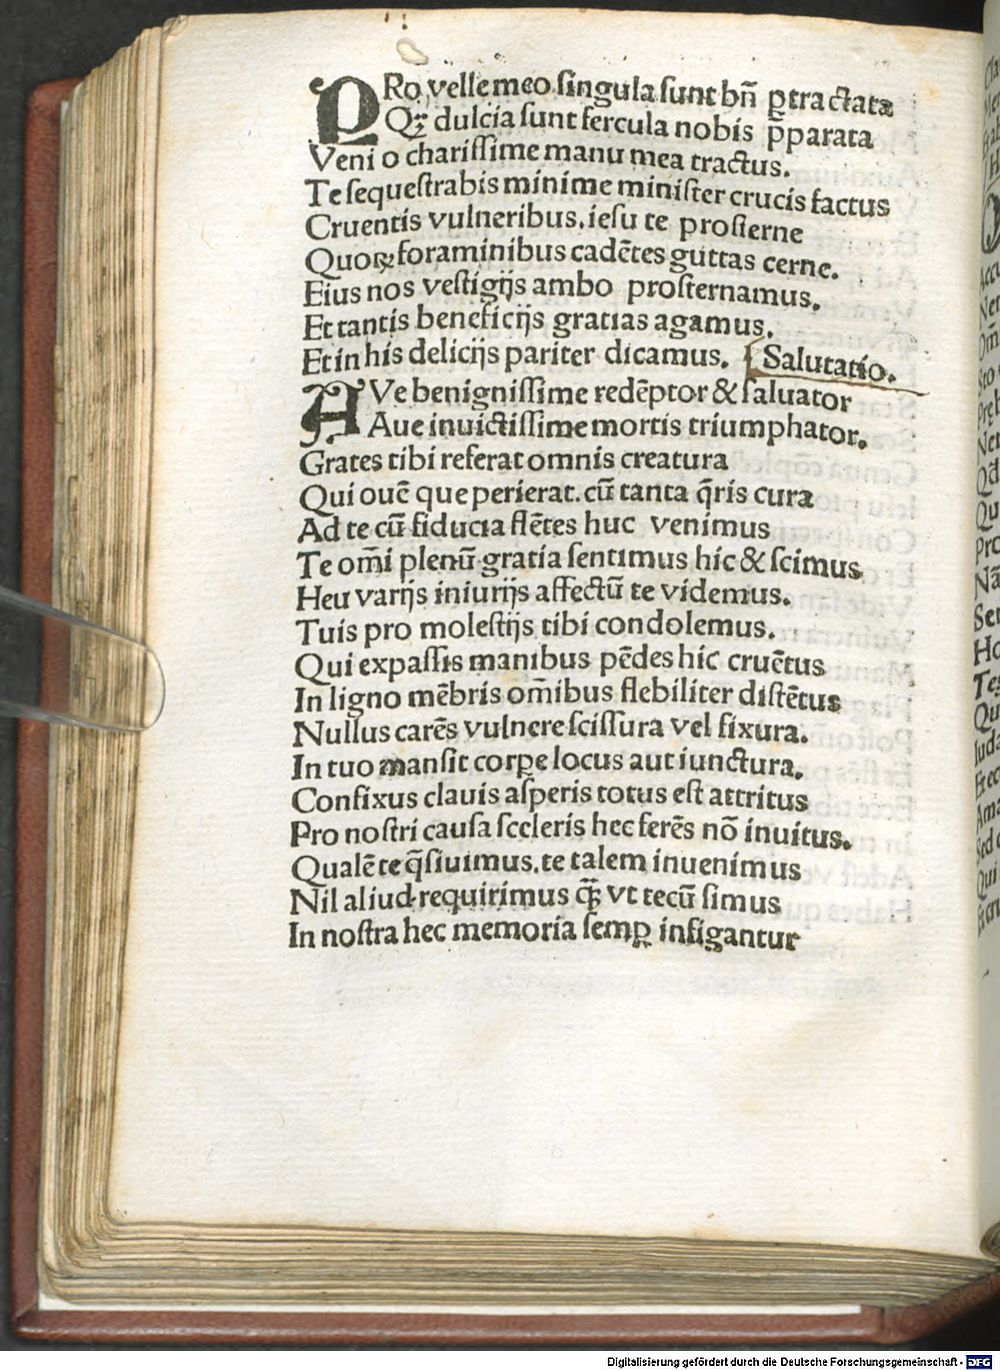 PRo velle meo ſingula ſunt bn̄ ꝑtractata
Qꝫ dulcia ſunt fercula nobis p̄parata
Veni o chariſſime manu mea tractus.
Te ſequeſtrabis minime miniſter crucis factus
Cruentis vulneribus. ieſu te proſterne
Quoꝝ foraminibus cadētes guttas cerne.
Eius nos veſtigijs ambo proſternamus.
Et tantis beneficijs gratias agamus.
Et in his delicijs pariter dicamus. Salutatio.
AVe benigniſſime redēptor & ſaluator
Aue inuictiſſime mortis triumphator.
Grates tibi referat omnis creatura
Qui ouē que perierat. cū tanta q̄ris cura
Ad te cū fiducia flētes huc venimus
Te om̄i plenū gratia ſentimus hic & ſcimus
Heu varijs iniurijs affectū te videmus.
Tuis pro moleſtijs tibi condolemus.
Qui expaſſis manibus pēdes hic cruētus
In ligno mēbris om̄ibus flebiliter diſtētus
Nullus carēs vulnere ſciſſura vel fixura.
In tuo manſit corꝑe locus aut iunctura.
Confixus clauis aſperis totus eſt attritus
Pro noſtri cauſa ſceleris hec ferēs nō inuitus.
Qualē te q̄ſiuimus. te talem inuenimus
Nil aliud requirimus q̄ꝫ vt tecū ſimus
In noſtra hec memoria ſemꝑ infigantur
Digitalisierung gefördert durch die Deutsche Forschungsgemeinschaft - DFG